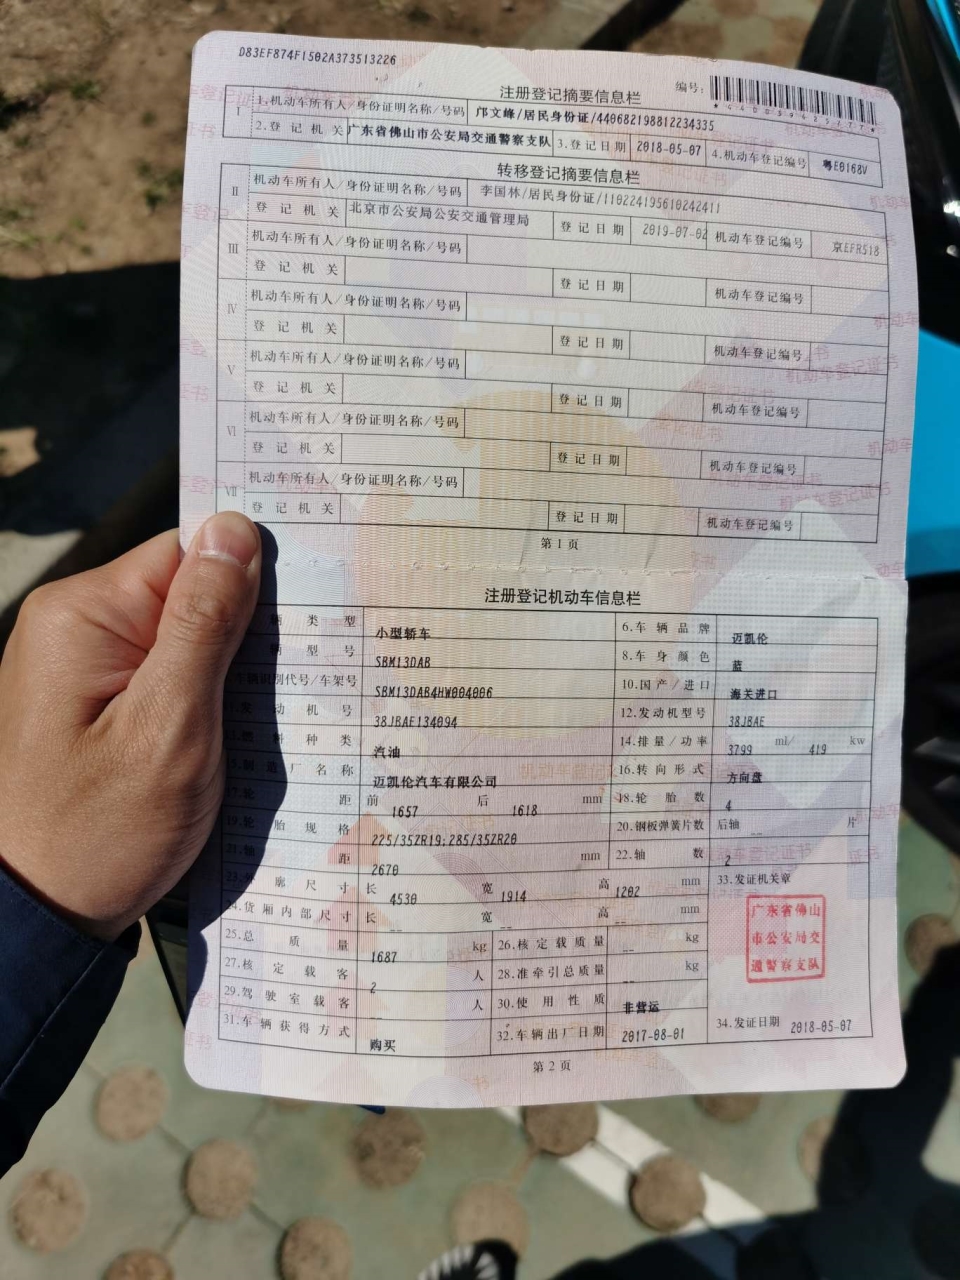 D83EF874F1502A373513226
注册登记摘要信息栏
编号:
I 1.机动车所有人/身份证明名称/号码 邝文峰/居民身份证/440682198812234335
2.登记机关 广东省佛山市公安局交通警察支队 3.登记日期 2018-05-07 4.机动车登记编号 粤E0168V
转移登记摘要信息栏
II 机动车所有人/身份证明名称/号码 李国林/居民身份证/110224195610242411
登记机关 北京市公安局公安交通管理局 登记日期 2019-07-02 机动车登记编号 京EFR518
III 机动车所有人/身份证明名称/号码
登记机关 登记日期 机动车登记编号
IV 机动车所有人/身份证明名称/号码
登记机关 登记日期 机动车登记编号
V 机动车所有人/身份证明名称/号码
登记机关 登记日期 机动车登记编号
VI 机动车所有人/身份证明名称/号码
登记机关 登记日期 机动车登记编号
VII 机动车所有人/身份证明名称/号码
登记机关 登记日期 机动车登记编号
第1页
注册登记机动车信息栏
辆类型 小型轿车 6.车辆品牌 迈凯伦
辆型号 SBM13DAB 8.车身颜色 蓝
车辆识别代号/车架号 SBM13DAB4HW004006 10.国产/进口 海关进口
发动机号 38JBAE134094 12.发动机型号 38JBAE
燃料种类 汽油 14.排量/功率 3799 ml/ 419 kw
15.制造厂名称 迈凯伦汽车有限公司 16.转向形式 方向盘
17.轮距 前 1657 后 1618 mm 18.轮胎数 4
19.轮胎规格 225/35ZR19;285/35ZR20 20.钢板弹簧片数 后轴 -- 片
21.轴距 2670 mm 22.轴数 2
23.外廓尺寸 长 4530 宽 1914 高 1202 mm 33.发证机关章
24.货厢内部尺寸 长 -- 宽 -- 高 -- mm
25.总质量 1687 kg 26.核定载质量 -- kg
27.核定载客 2 人 28.准牵引总质量 -- kg
29.驾驶室载客 -- 人 30.使用性质 非营运
31.车辆获得方式 购买 32.车辆出厂日期 2017-08-01 34.发证日期 2018-05-07
广东省佛山
市公安局交
通警察支队
第2页